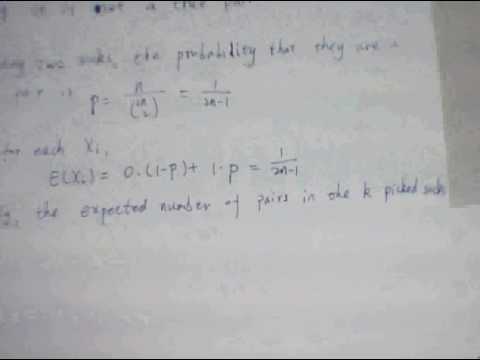 it is not a true pair
two socks, the probability that they are a
pair is p = n / (2n 2) = 1 / 2n-1
for each Xi,
E(Xi) = 0·(1-p) + 1·p = 1 / 2n-1
the expected number of pairs in the k picked socks